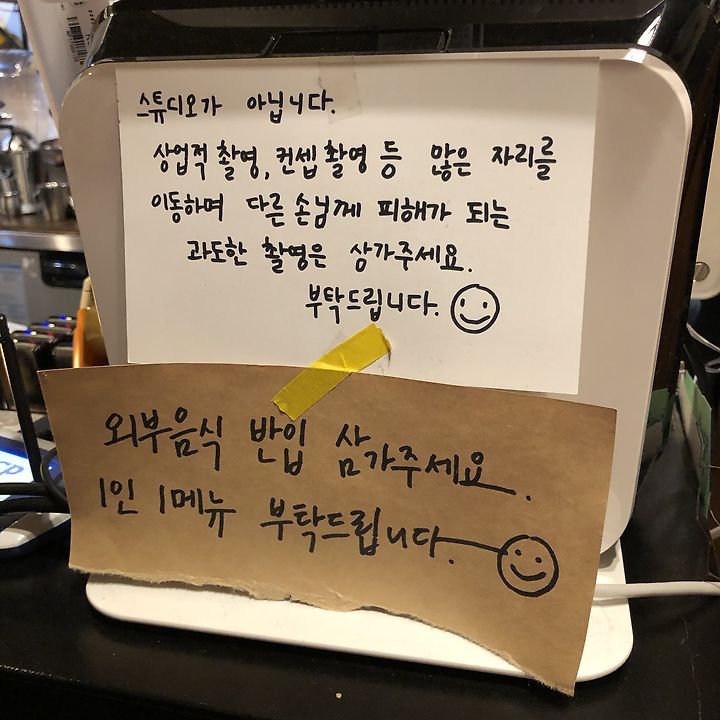 스튜디오가 아닙니다.
상업적 촬영, 컨셉 촬영 등 많은 자리를
이동하며 다른 손님께 피해가 되는
과도한 촬영은 삼가주세요.
부탁드립니다.
외부음식 반입 삼가주세요.
1인 1메뉴 부탁드립니다.